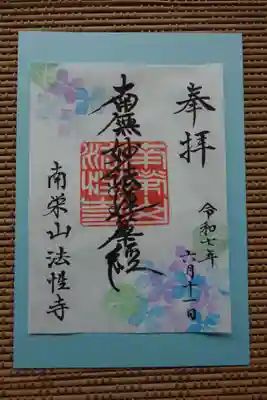 奉拝
令和七年
六月十一日
南無妙法蓮華経
南栄山法性寺